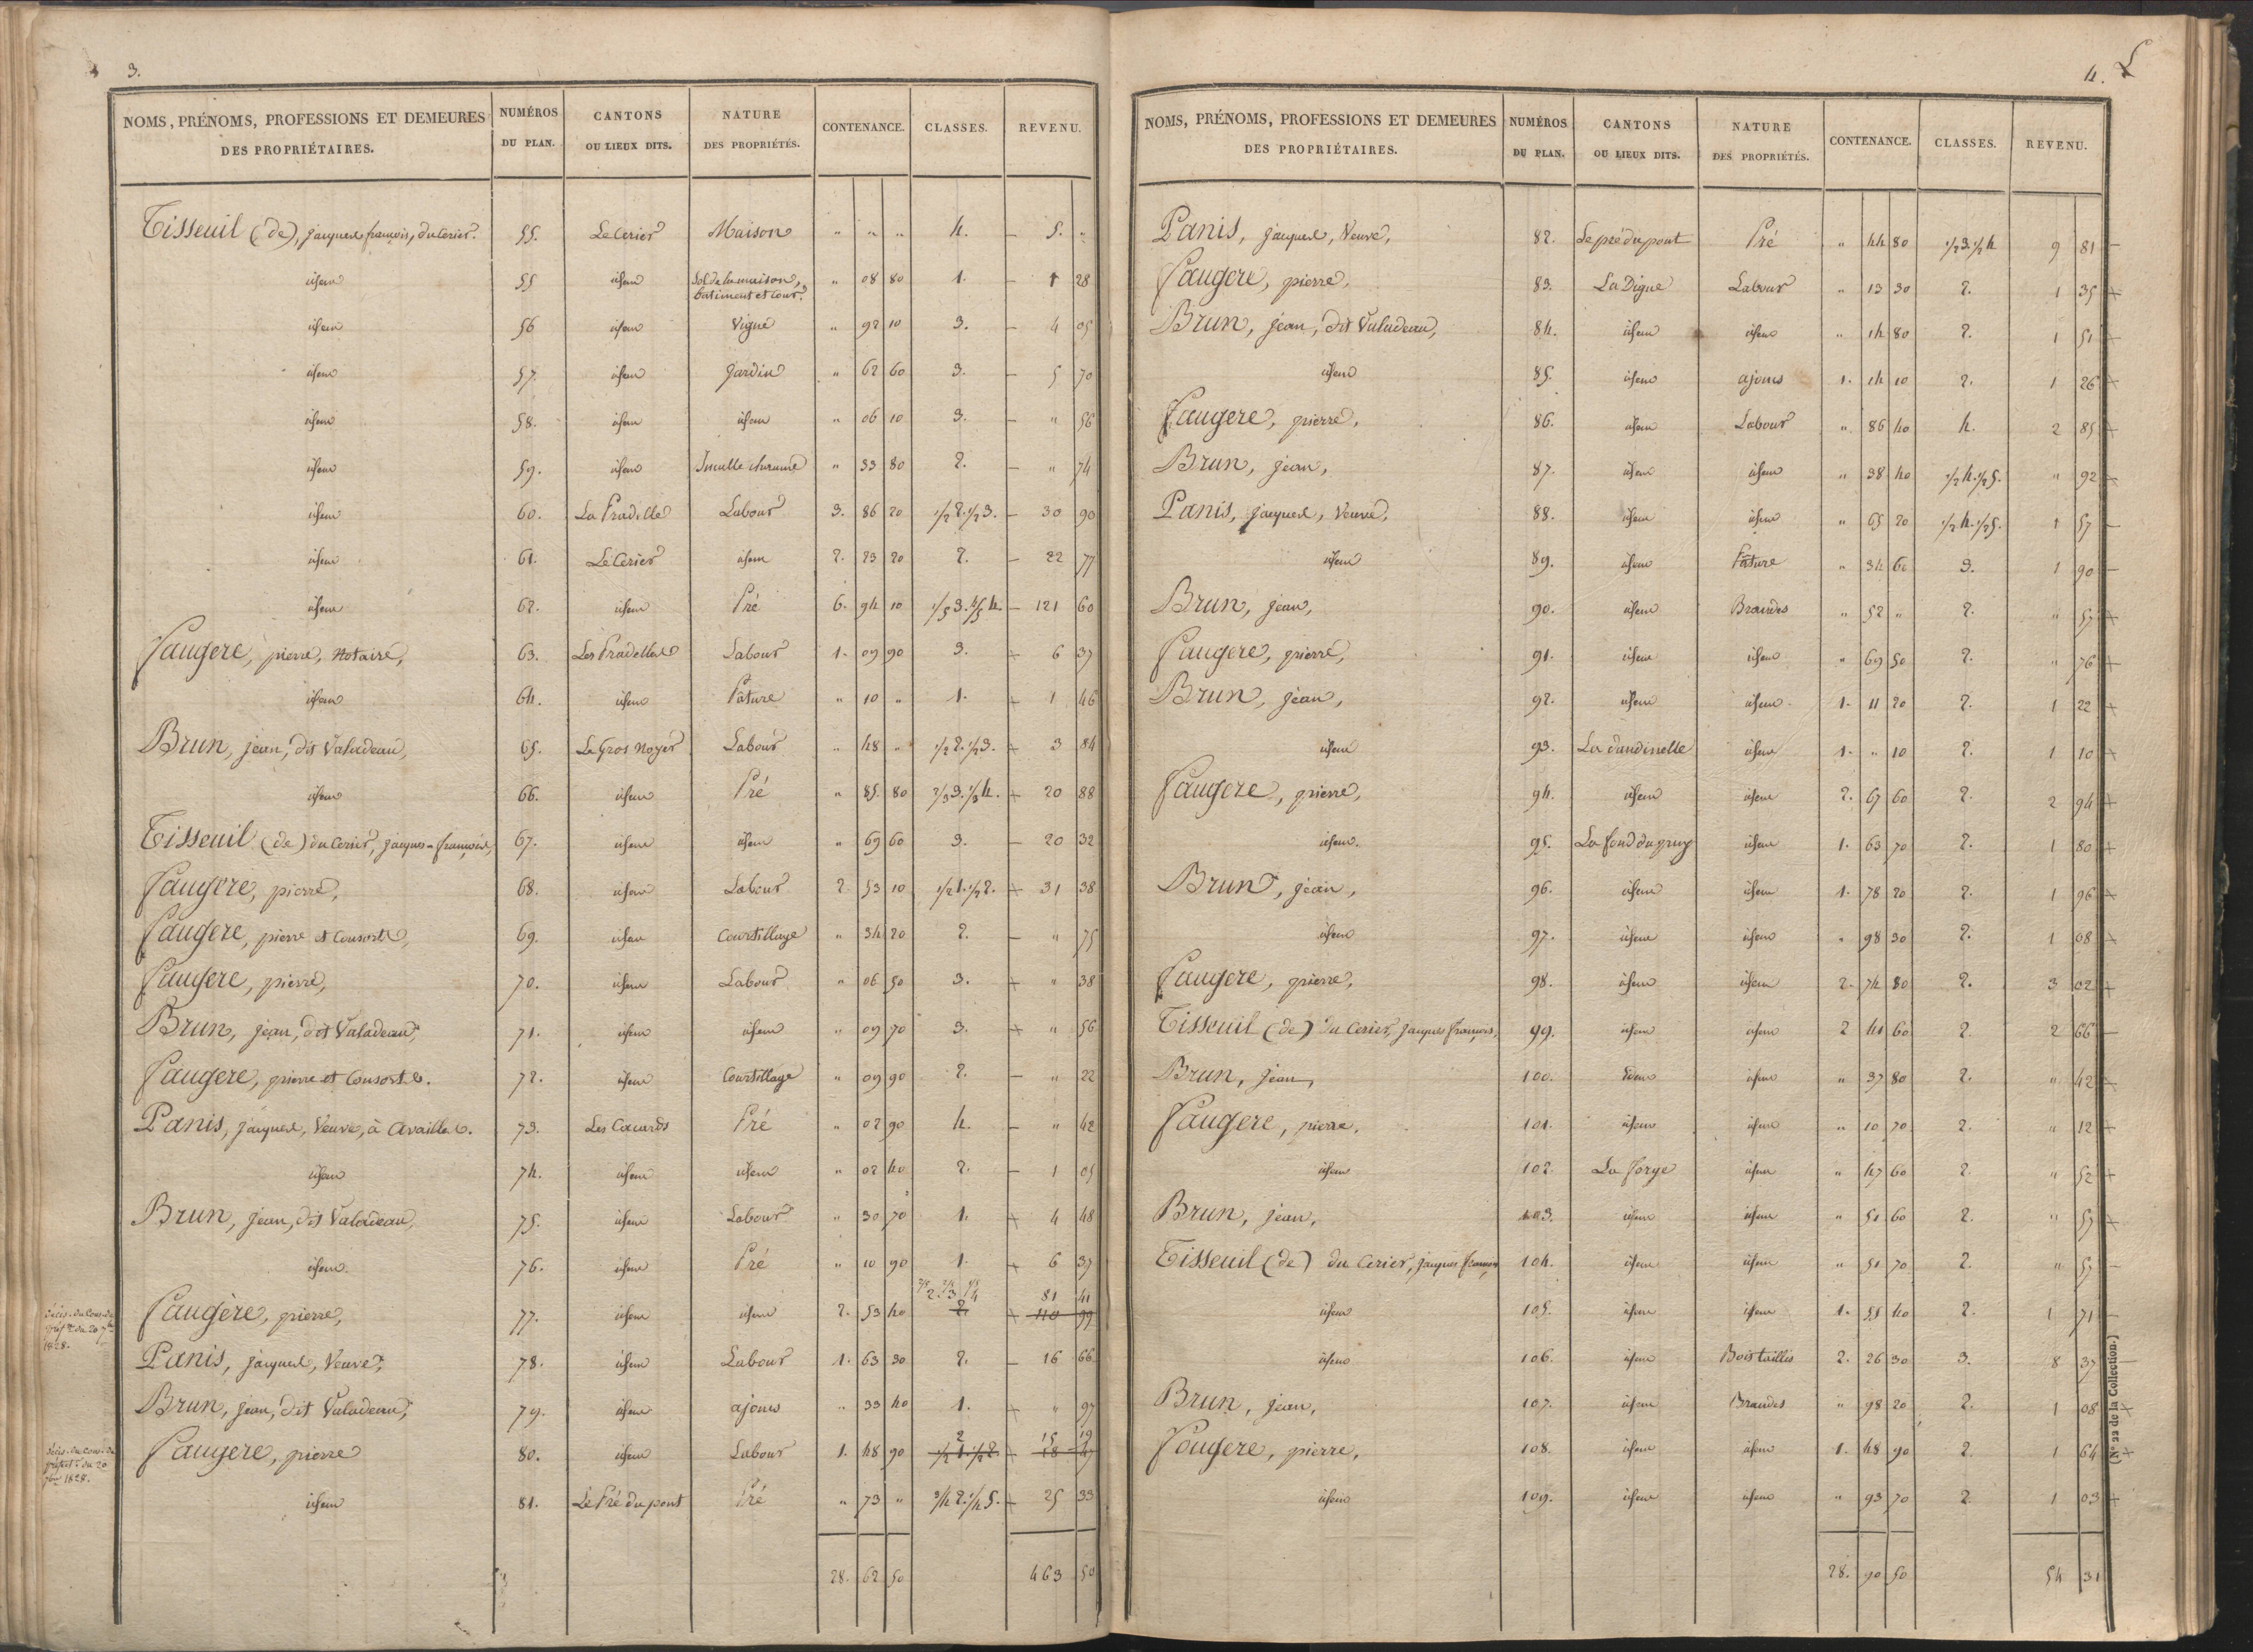 3.
NOMS, PRÉNOMS, PROFESSIONS ET DEMEURES DES PROPRIÉTAIRES. | NUMÉROS DU PLAN. | CANTONS OU LIEUX DITS. | NATURE DES PROPRIÉTÉS. | CONTENANCE. | CLASSES. | REVENU.
Tisseuil (de), jacques françois, du Cerier. 55. Le Cerier Maison " " " 4. – 5. "
idem 55 idem Sol de la maison, batiment et cour. " 08 80 1. – 1 28
idem 56 idem Vigne " 92 10 3. – 4 05
idem 57. idem Jardin " 62 60 3. – 5 70
idem 58. idem idem " 06 10 3. – " 56
idem 59. idem " 33 80 2. – " 74
idem 60. La Pradelle Labour 3. 86 20 1/2 2. 1/2 3. – 30 90
idem 61. Le Cerier idem 2. 23 20 2. – 22 77
idem 62. idem Pré 6. 94 10 1/5 3. 4/5 4. – 121 60
Faugere, pierre, Notaire, 63. Les Pradelles Labour 1. 09 90 3. + 6 37
idem 64. idem Pâture " 10 " 1. + 1 46
Brun, jean, dit Valadeau, 65. Le Gros Noyer Labour " 48 " 1/2 2. 1/2 3. + 3 84
idem 66. idem Pré " 85. 80 2/3 3. 1/3 4. + 20 88
Tisseuil (de) du Cerier, jacques-françois, 67. idem idem " 69 60 3. – 20 32
Faugere, pierre, 68. idem Labour 2 53 10 1/2 1. 1/2 2. + 31 38
Faugere, pierre et Consorts, 69. idem Courtillage " 34 20 2. – " 75
Faugere, pierre, 70. idem Labour " 06 50 3. + " 38
Brun, jean, dit Valadeau, 71. idem idem " 09 70 3. + " 56
Faugere, pierre et Consorts. 72. idem Courtillage " 09 90 2. – " 22
Panis, jacques, Veuve, à Availles. 73. Les Cocards Pré " 02 90 4. – " 42
idem 74. idem idem " 02 40 2. – 1 05
Brun, jean, dit Valadeau, 75. idem Labour " 30 70 1. + 4 48
idem 76. idem Pré " 10 90 1. + 6 37
Décis. du Cons. de préfre du 20 7bre 1828.
Faugère, pierre, 77. idem idem 2. 53 40 2. 3 4 2. + 81 41 110 99
Panis, jacques, Veuve, 78. idem Labour 1. 63 30 2. – 16 66
Brun, jean, dit Valadeau, 79. idem ajoncs " 33 40 1. + " 97
Décis. du cons. de préfect. du 20 7bre 1828.
Faugere, pierre 80. idem Labour 1. 48 90 2 1/2 1. 1/2 2. + 15 19 18 47
idem 81. Le Pré du pont Pré " 73 " 3/4 2. 1/4 5. + 25 33
28. 62 50 463 50
4.
NOMS, PRÉNOMS, PROFESSIONS ET DEMEURES DES PROPRIÉTAIRES. | NUMÉROS DU PLAN. | CANTONS OU LIEUX DITS. | NATURE DES PROPRIÉTÉS. | CONTENANCE. | CLASSES. | REVENU.
Panis, jacques, Veuve, 82. Le pré du pont Pré " 44 80 1/2 3. 1/2 4 9 81 –
Faugere, pierre, 83. La Digue Labour " 13 30 2. 1 35 +
Brun, jean, dit Valadeau, 84. idem idem " 14 80 2. 1 51 +
idem 85. idem ajoncs 1. 14 10 2. 1 26 +
Faugere, pierre, 86. idem Labour " 86 40 4. 2 85 +
Brun, jean, 87. idem idem " 38 40 1/2 4. 1/2 5. " 92 +
Panis, jacques, Veuve, 88. idem idem " 65 20 1/2 4. 1/2 5. 1 57 –
idem 89. idem Pâture " 34 60 3. 1 90 –
Brun, jean, 90. idem Brandes " 52 " 2. " 57 +
Faugere, pierre, 91. idem idem " 69 50 2. " 76 +
Brun, jean, 92. idem idem 1. 11 20 2. 1 22 +
idem 93. La Daudinelle idem 1. " 10 2. 1 10 +
Faugere, pierre, 94. idem idem 2. 67 60 2. 2 94 +
idem. 95. La fond du puy idem 1. 63 70 2. 1 80 +
Brun, jean, 96. idem idem 1. 78 20 2. 1 96 +
idem 97. idem idem " 98 30 2. 1 08 +
Faugere, pierre, 98. idem idem 2. 74 80 2. 3 02 +
Tisseuil (de) du Cerier, jacques françois, 99. idem idem 2 41 60 2. 2 66 –
Brun, jean, 100. idem idem " 37 80 2. " 42 +
Faugere, pierre, 101. idem idem " 10 70 2. " 12 +
idem 102. La forge idem " 47 60 2. " 52 +
Brun, jean, 103. idem idem " 51 60 2. " 57 +
Tisseuil (de) du Cerier, jacques françois 104. idem idem " 51 70 2. " 57 –
idem 105. idem idem 1. 55 40 2. 1 71 –
idem 106. idem Bois taillis 2. 26 30 3. 8 37 –
Brun, jean, 107. idem Brandes " 98 20 2. 1 08 +
Faugere, pierre, 108. idem idem 1. 48 90 2. 1 64 +
idem 109. idem idem " 93 70 2. 1 03 +
28. 90 50 54 31
(N° 22 de la Collection.)